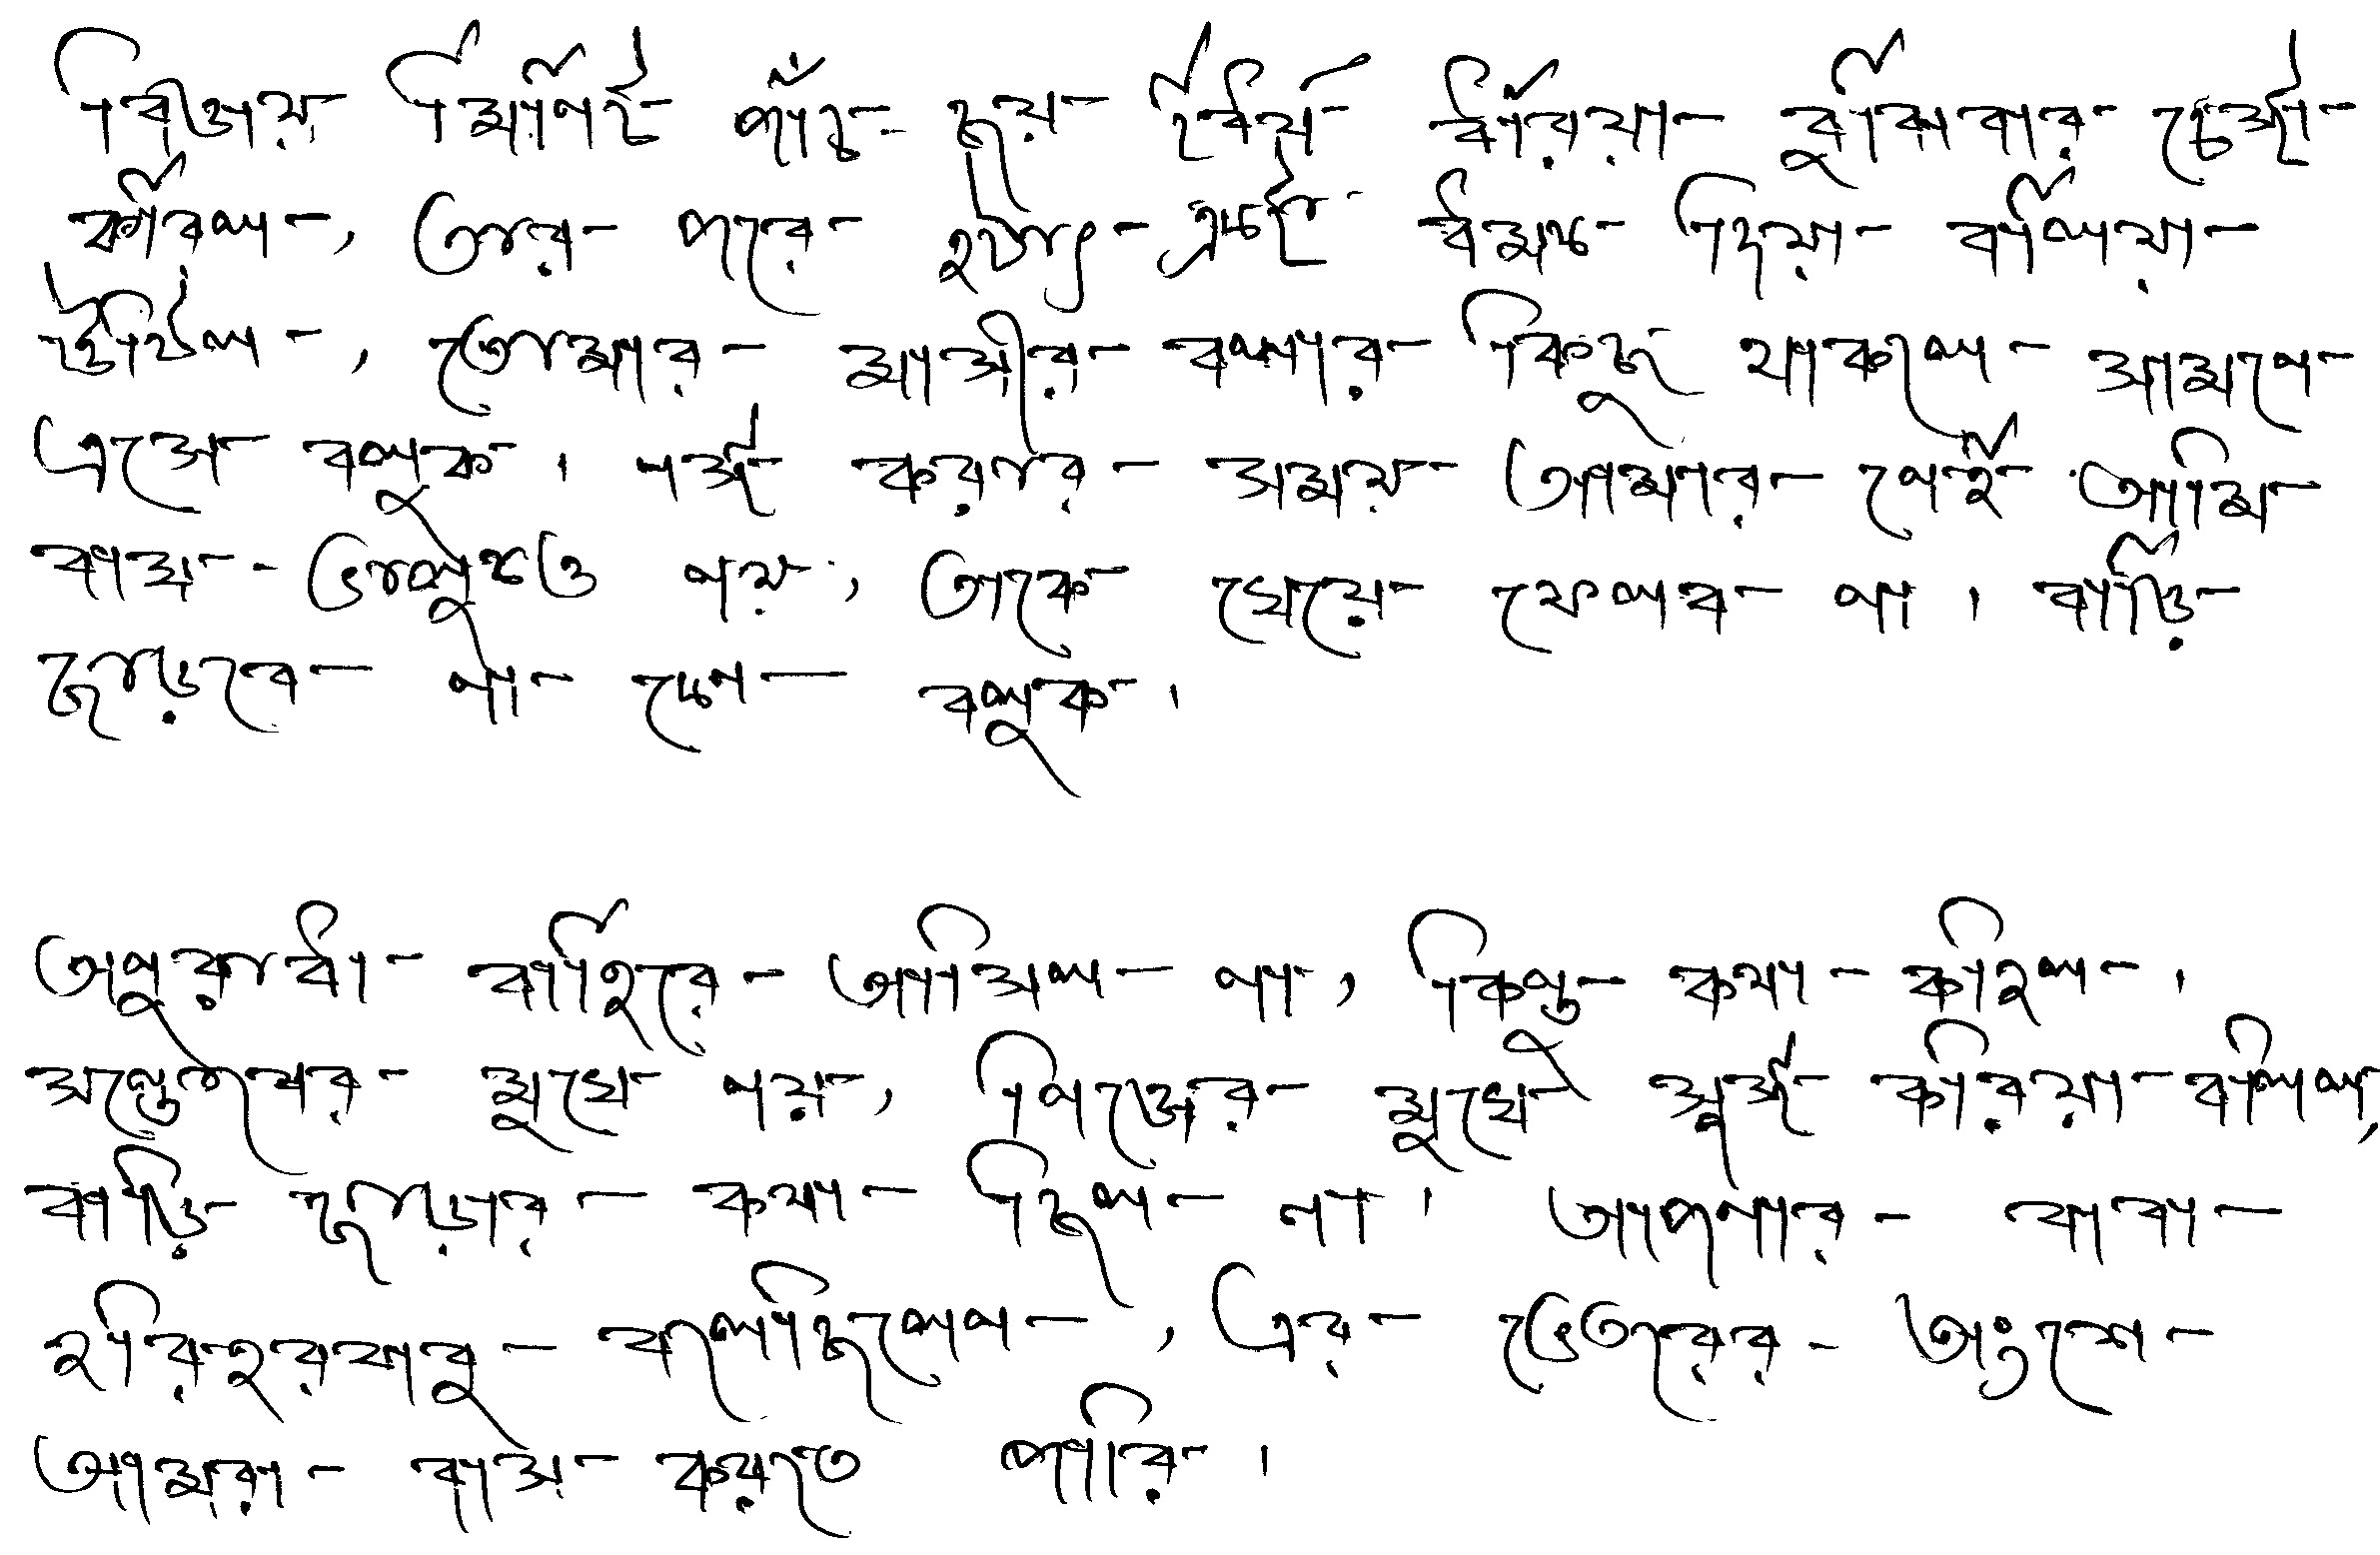 বিজয় মিনিট পাঁচ ছয় ধৈর্য্য ধরিয়া বুঝিবার চেষ্টা
করিল, তার পরে হঠাৎ একটা ধমক দিয়া বলিয়া
উঠিল, তোমার মাসীর বলার কিছু থাকলে সামনে
এসে বলুক। নষ্ট করার সময় আমার নেই আমি
বাঘ-ভালুকও নয়, তাকে খেয়ে ফেলব না। বাড়ি
ছাড়বে না কেন বলুক।
অনুরাধা বাহিরে আসিল না, কিন্তু কথা কহিল।
সন্তোষের মুখে নয়, নিজের মুখে স্পষ্ট করিয়া বলিল,
বাড়ি ছাড়ার কথা ছিল না। আপনার বাবা
হরিহরবাবু বলেছিলেন, এর ভেতরের অংশে
আমরা বাস করতে পারি।